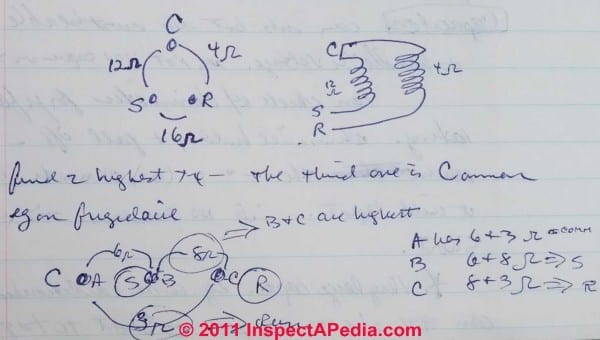 C
C
12Ω
4Ω
12Ω
4Ω
S
R
S
R
16Ω
find 2 highest - the third one is Common
eg on frigidaire
⇒ B + C are highest
6Ω
8Ω
C A S B C R
3Ω
⇒ Run
A has 6+3 Ω = COMM
B 6+8 Ω ⇒ S
C 8+3 Ω ⇒ R
© 2011 InspectAPedia.com